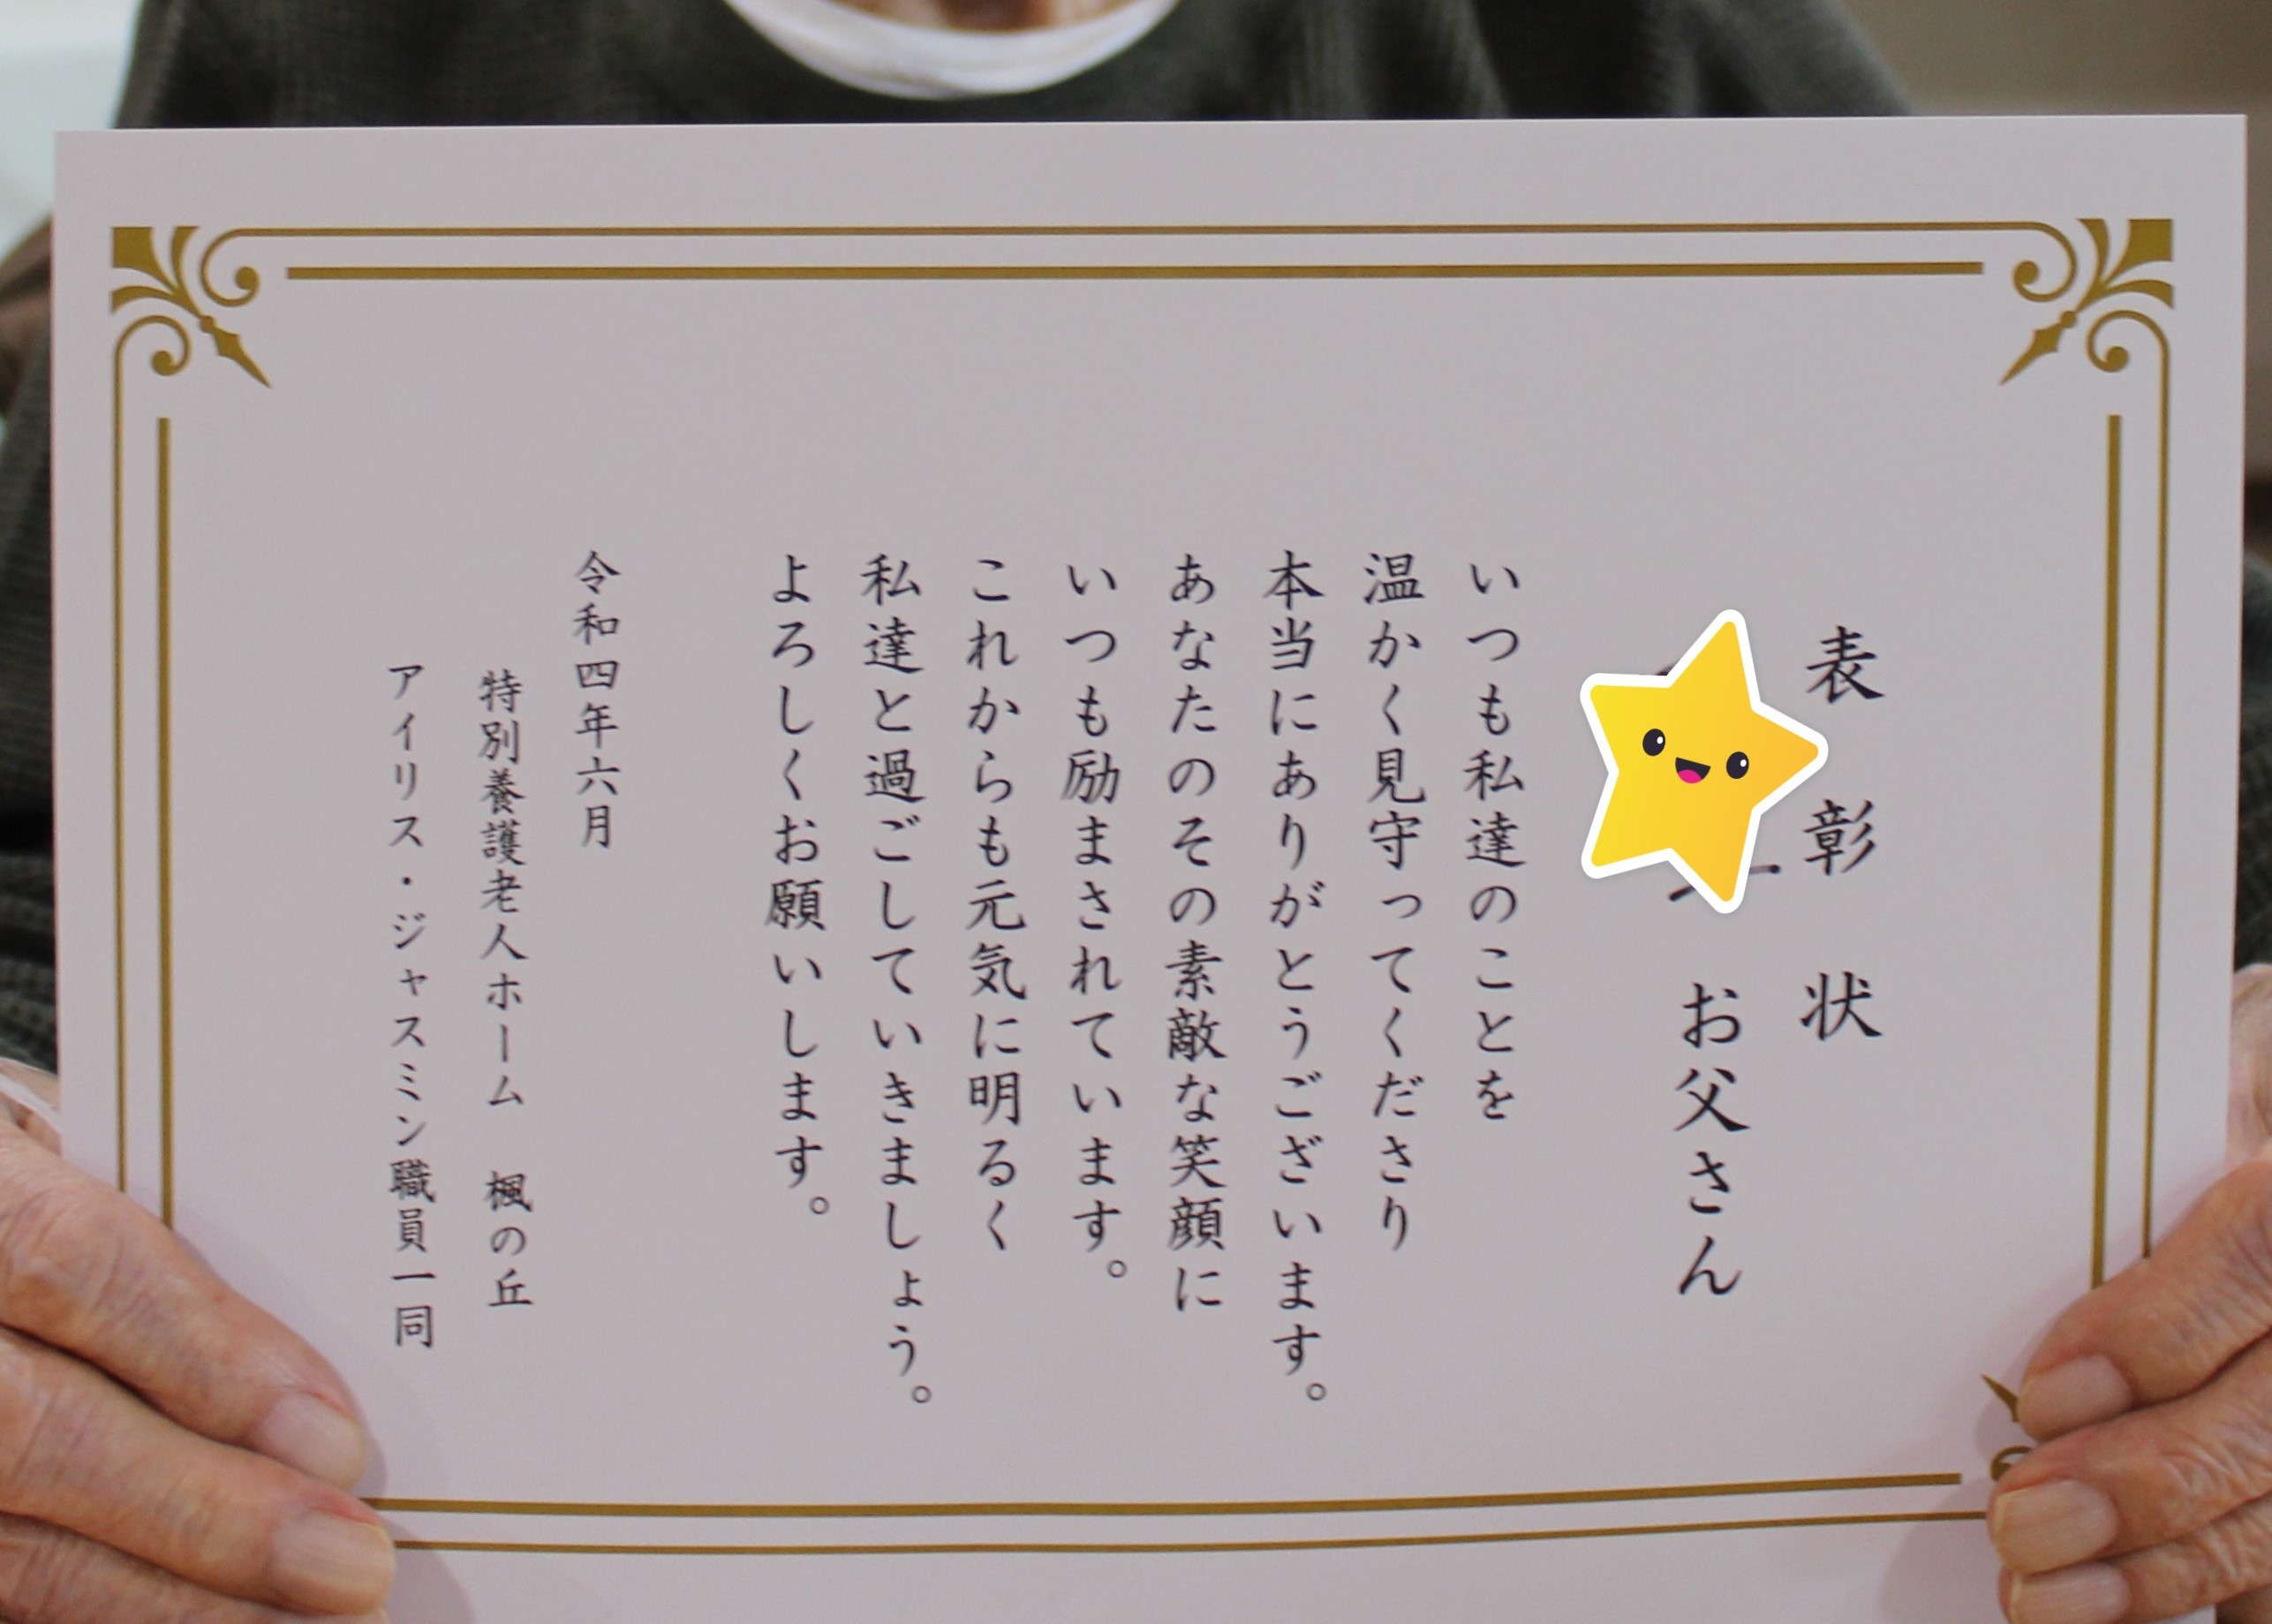 表彰状
お父さん
いつも私達のことを
温かく見守ってくださり
本当にありがとうございます。
あなたのその素敵な笑顔に
いつも励まされています。
これからも元気に明るく
私達と過ごしていきましょう。
よろしくお願いします。
令和四年六月
特別養護老人ホーム 楓の丘
アイリス・ジャスミン職員一同